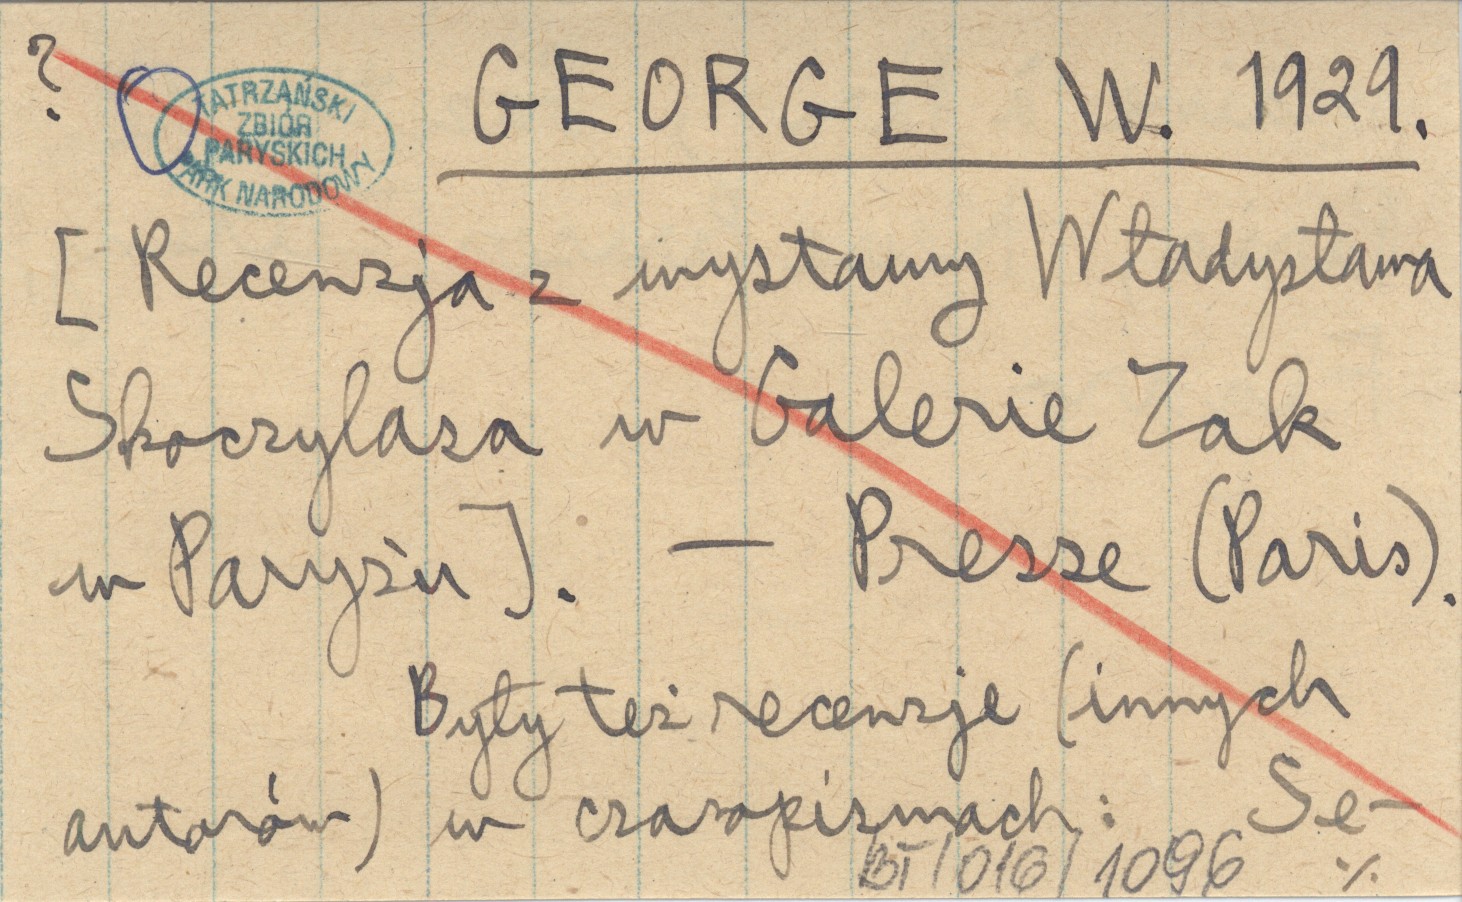 ?
TATRZAŃSKI
ZBIÓR
PARYSKICH
PARK NARODOWY
GEORGE W. 1929.
[Recenzja z wystawy Władysława
Skoczylasa w Galerie Zak
w Paryżu]. — Presse (Paris).
Były też recenzje (innych
autorów) w czasopismach: Se-
BT/016/1096
%